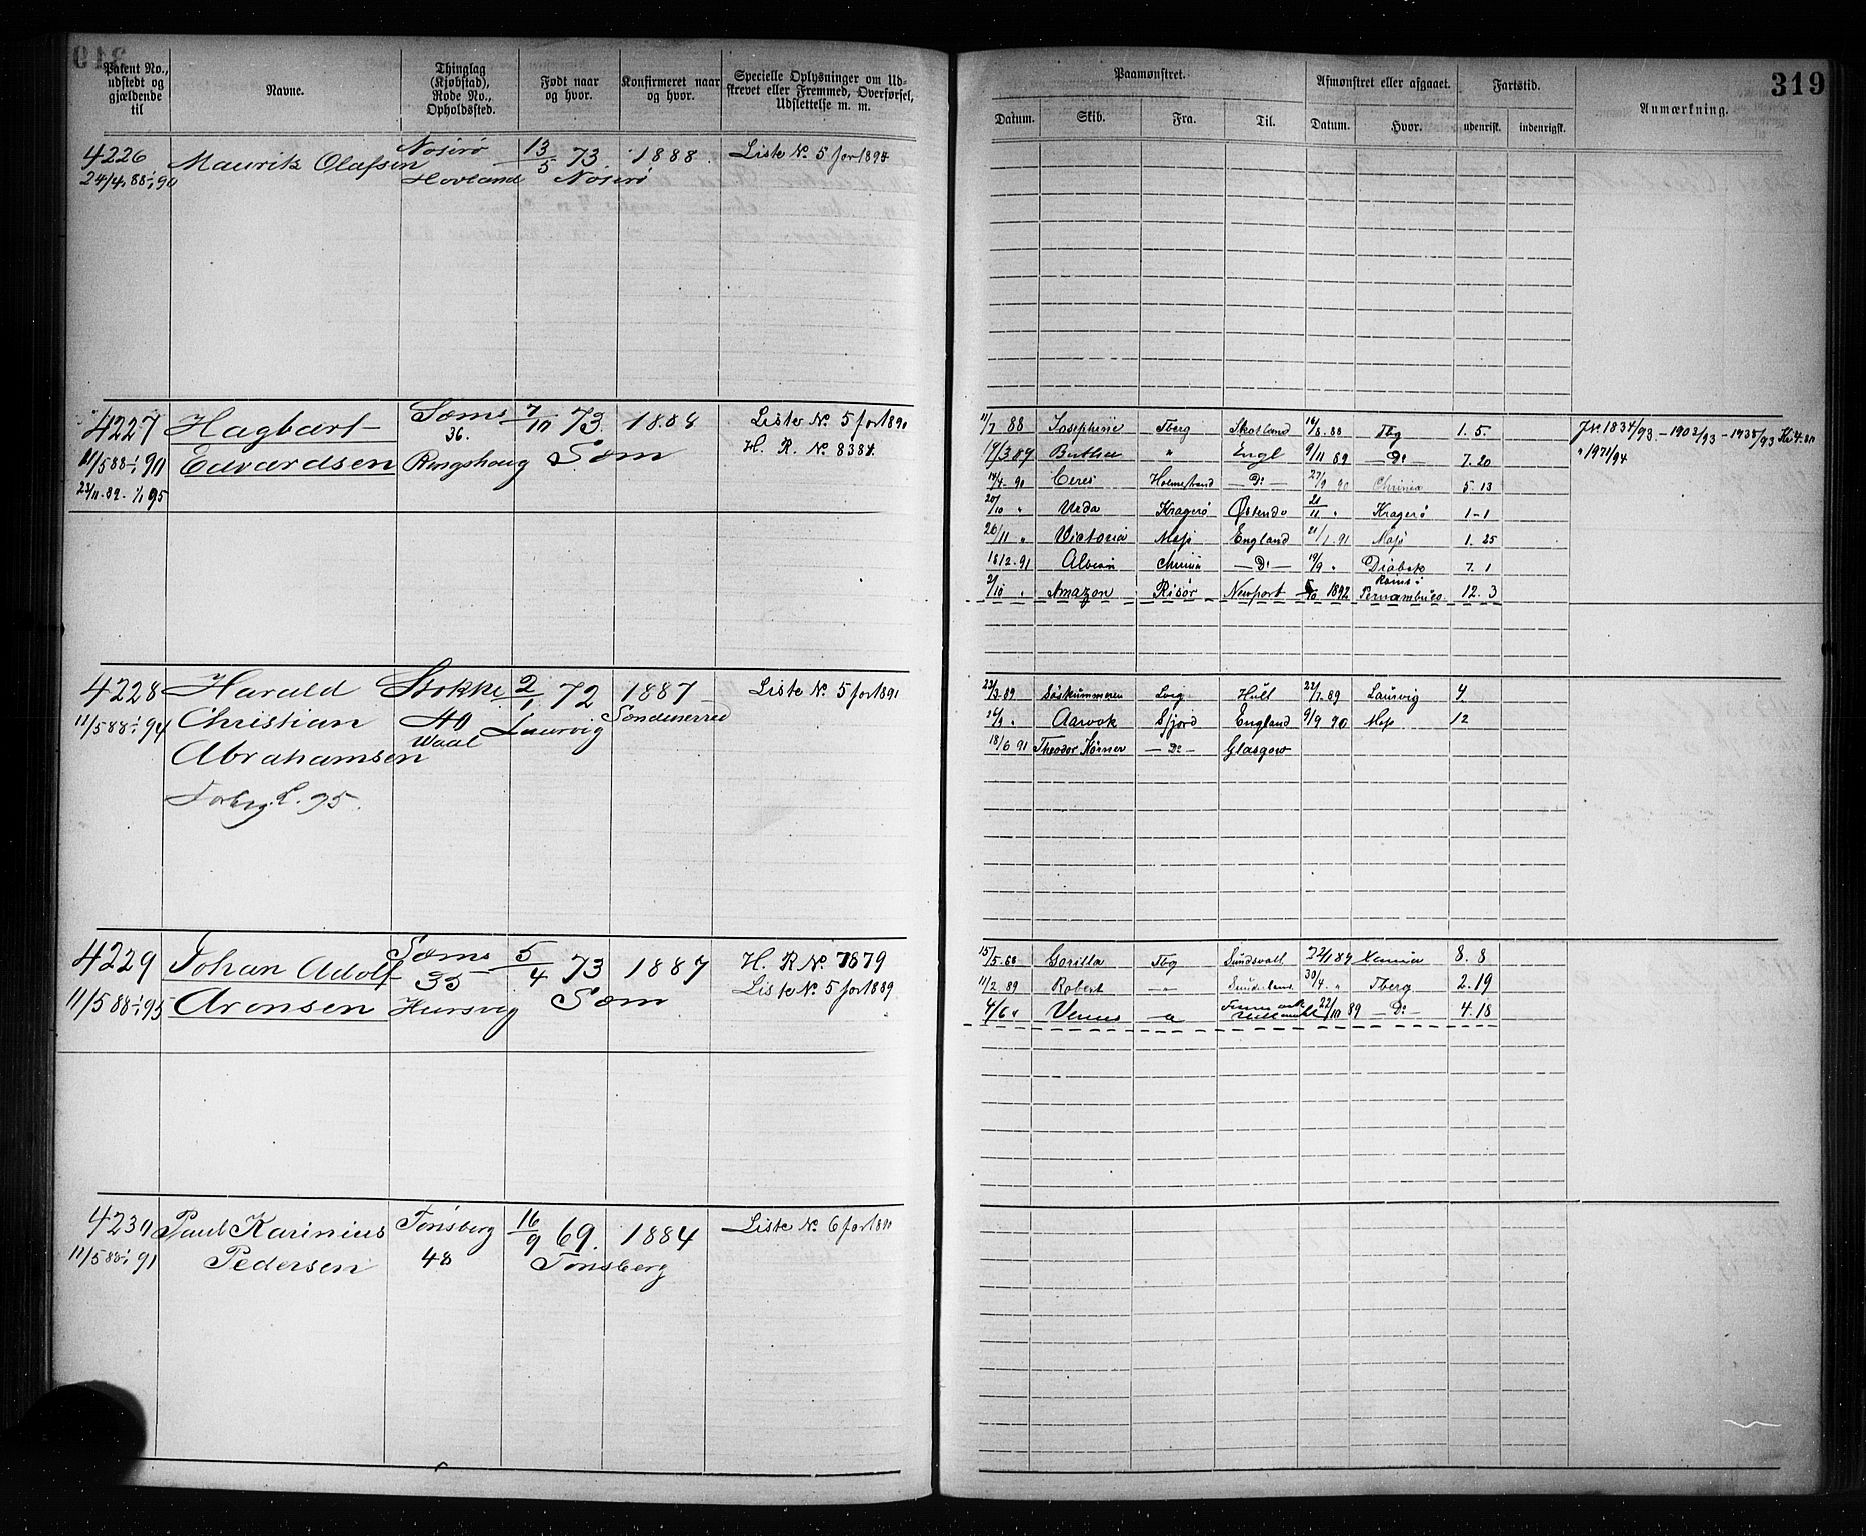 319
Patent No., udstedt og gjældende til
Navne.
Thinglag (Kjøbstad), Rode No., Opholdssted.
Født naar og hvor.
Konfirmeret naar og hvor.
Specielle Oplysninger om Udskrevet eller Fremmed, Overførsel, Udslettelse m. m.
Paamønstret.
Datum. Skib. Fra. Til.
Afmønstret eller afgaaet.
Datum. Hvor.
Fartstid.
udenrisk. indenrigsk.
Anmærkning.
4226 Mauritz Olafsen Nøterø 13/5 73. 1888. Liste No 5 for 1894
24/4 88-1/1 90 Hovland Nøterø
4227 Hagbart Sæms 7/10 73. 1888 Liste No 5 for 1890
Edvardsen 36. Sæm H. R. No 8384
Ringshoug
23/11.89-1/1 95
11/7 88 Josephine Tberg Skotland 16/8.88 Tbg 1. 5.
17/3 89 Bertha " Engl 9/11 89 -Do- 7. 20
14/4. 90 Ceres Holmestrand -Do- 27/9 90 Chrinia 5. 13
20/10 " Urda Kragerø Ostende 20/11 " Kragerø 1-1
26/11 " Victoria Moss England 21/1.91 Moss 1. 25
18/2-91 Albion Chrinia -Do- 19/9 " Drøbak 7. 1
2/10 " Amazon Risør Newport 1892 Pernambuco. 12. 3
Jr. 1834/93.-1902/93-1935/93
" 1971/94
4228 Harald Stokke 2/1 72 1887 Liste No 5 for 1891
11/5 88-1/1 94 Christian 40 Laurvig Sandeherred
Abrahamsen Waal
Forbig. L. 95.
23/3.89 Lvig Hull 22/7.89 Laurvig 4.
16/9 " Aarvok Sfjord England 9/9 90 Moss 12
18/6 91 Theodor Körner -Do- Glasgow
4229 Johan Adolf Sæms 5/4 73 1887 H. R No. 7679
11/5 88-1/1 95 Aronsen 35 Sæm Liste No. 5 for 1889
Hursvig
15/5.88 Gorilla Tbg Sundsvall 22/1 89 Xania 8. 8
11/2 89 Robert -"- Sunderland 30/4. " Tberg 2. 19
4/6 " Venus 22/10 89 -Do- 4. 18
4230 Paul Karinius Tønsberg 16/9 69. 1884 Liste No. 6 for 1891
11/5 88-1/1 91 Pedersen 48 Tønsberg